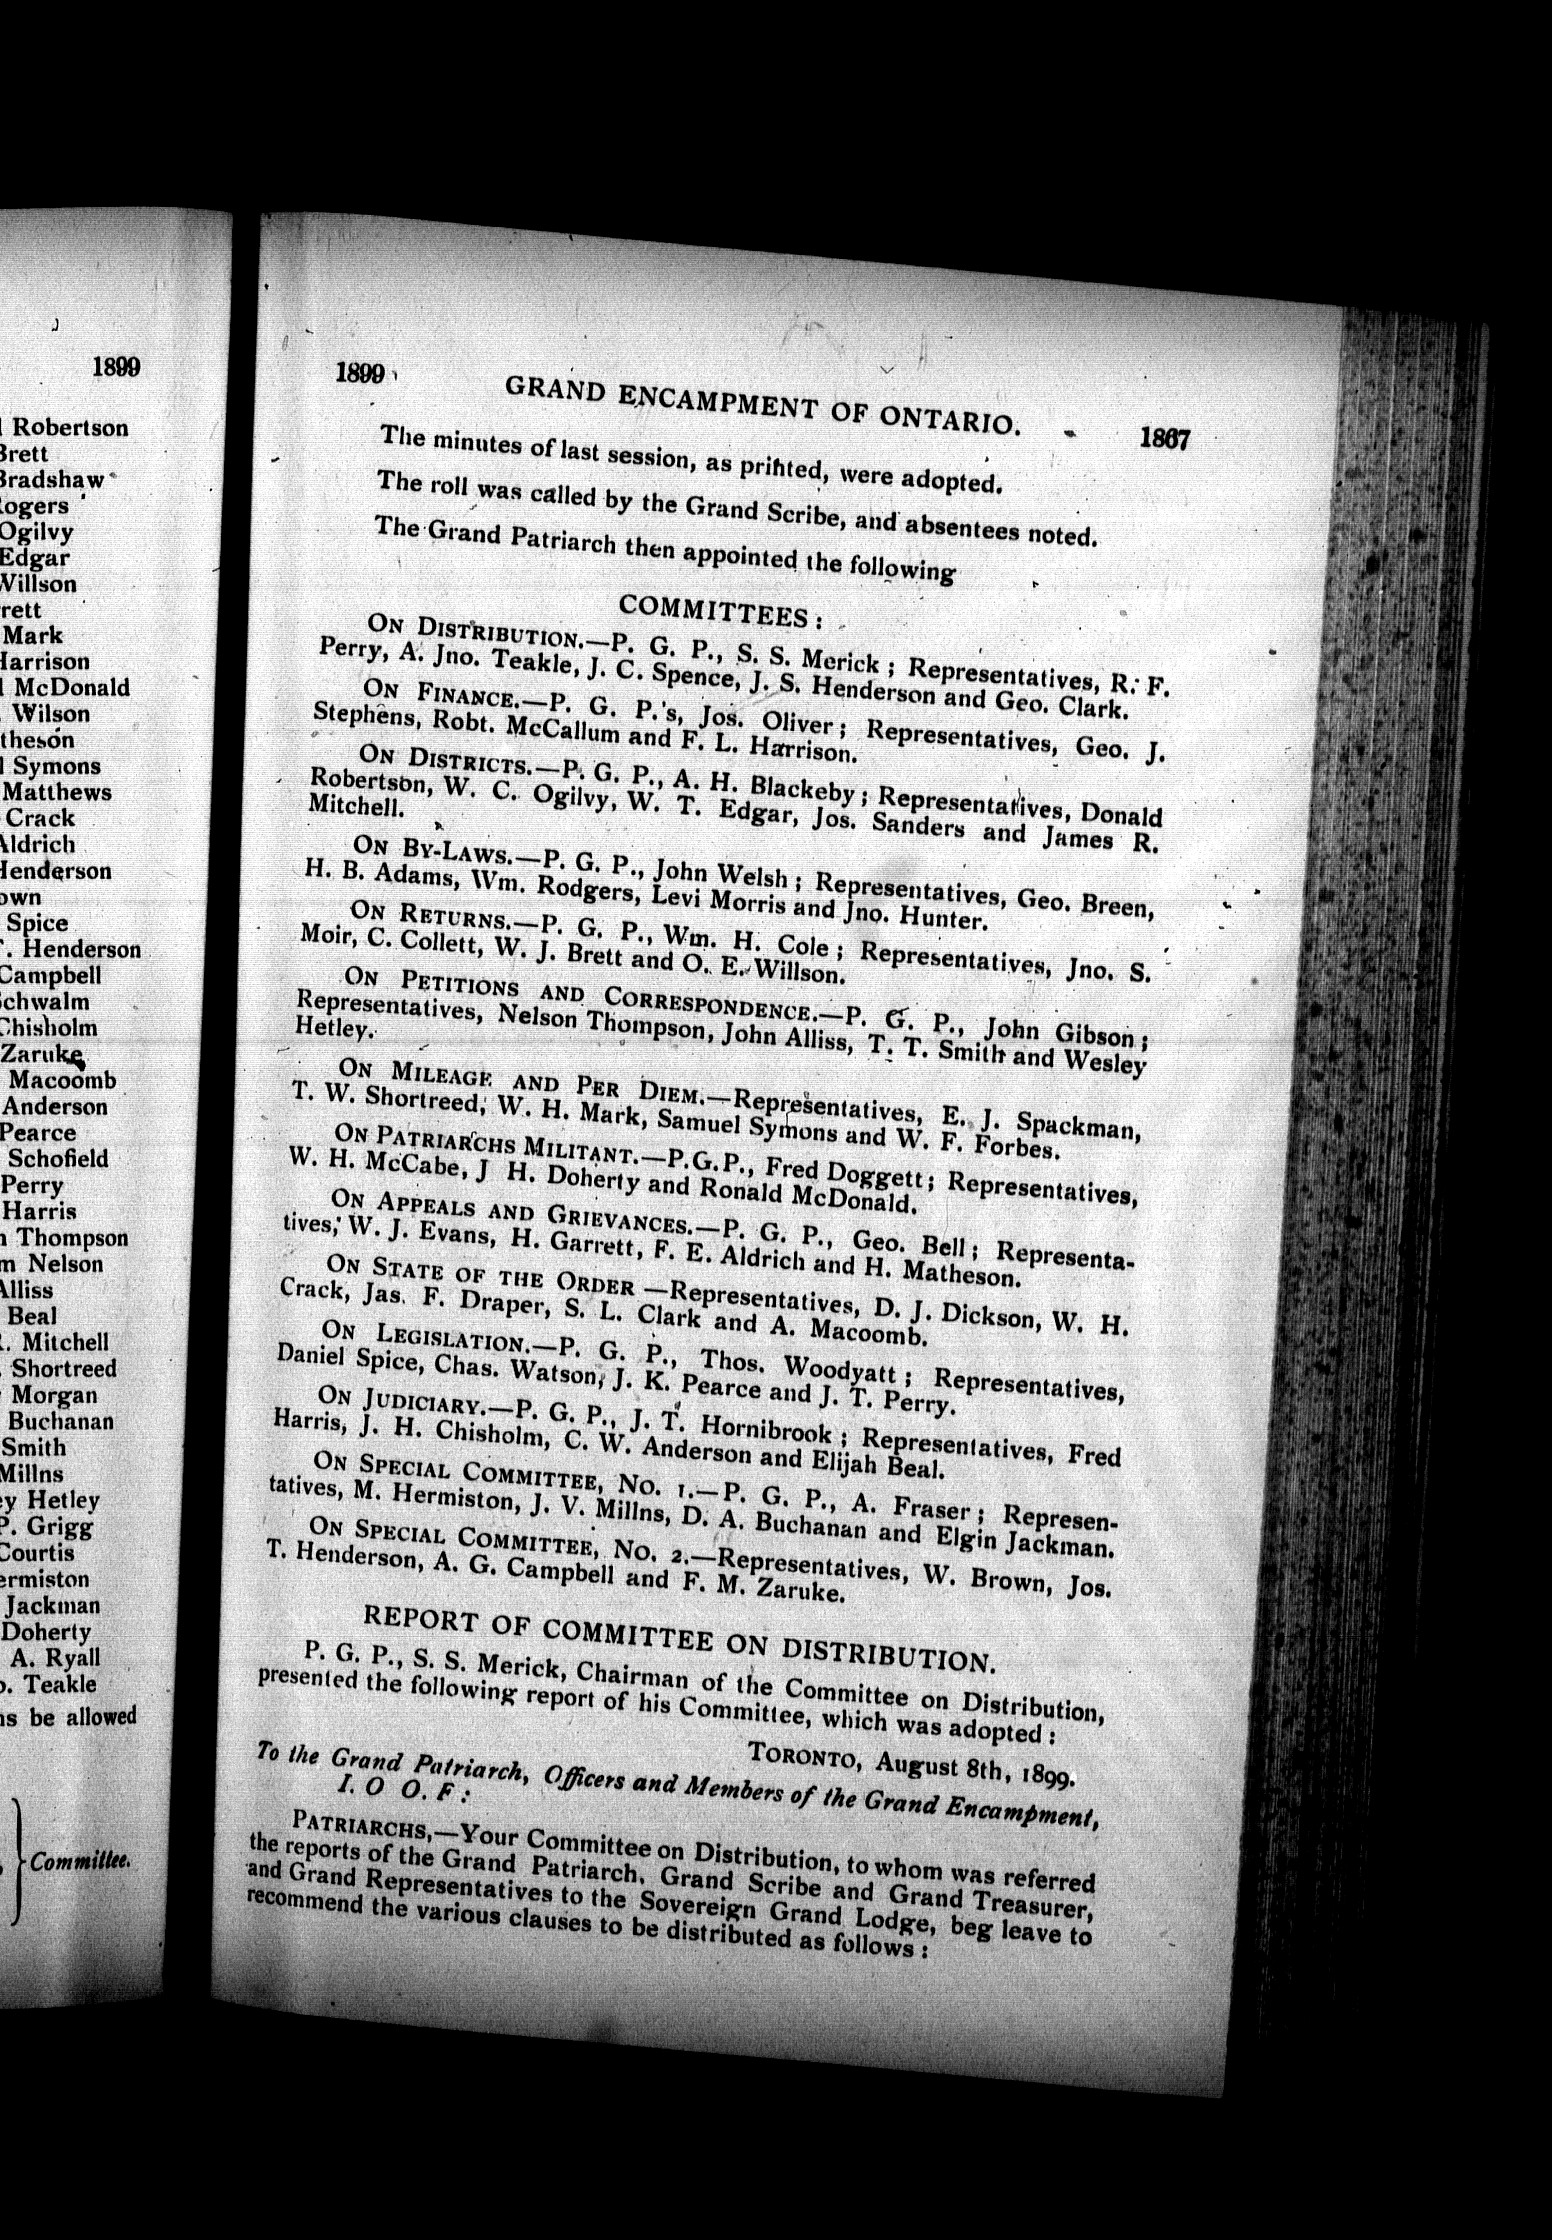 1899
Robertson
Brett
Bradshaw
Rogers
Ogilvy
Edgar
Willson
rett
Mark
Harrison
McDonald
Wilson
theson
Symons
Matthews
Crack
Aldrich
Henderson
own
Spice
T. Henderson
Campbell
Schwalm
Chisholm
Zaruke
Macoomb
Anderson
Pearce
Schofield
Perry
Harris
Thompson
m Nelson
Alliss
Beal
R. Mitchell
Shortreed
Morgan
Buchanan
Smith
Millns
ey Hetley
P. Grigg
Courtis
ermiston
Jackman
Doherty
A. Ryall
o. Teakle
ns be allowed
Committee.
1899 GRAND ENCAMPMENT OF ONTARIO. 1867
The minutes of last session, as printed, were adopted.
The roll was called by the Grand Scribe, and absentees noted.
The Grand Patriarch then appointed the following
COMMITTEES:
ON DISTRIBUTION.—P. G. P., S. S. Merick; Representatives, R. F.
Perry, A. Jno. Teakle, J. C. Spence, J. S. Henderson and Geo. Clark.
ON FINANCE.—P. G. P.'s, Jos. Oliver; Representatives, Geo. J.
Stephens, Robt. McCallum and F. L. Harrison.
ON DISTRICTS.—P. G. P., A. H. Blackeby; Representatives, Donald
Robertson, W. C. Ogilvy, W. T. Edgar, Jos. Sanders and James R.
Mitchell.
ON BY-LAWS.—P. G. P., John Welsh; Representatives, Geo. Breen,
H. B. Adams, Wm. Rodgers, Levi Morris and Jno. Hunter.
ON RETURNS.—P. G. P., Wm. H. Cole; Representatives, Jno. S.
Moir, C. Collett, W. J. Brett and O. E. Willson.
ON PETITIONS AND CORRESPONDENCE.—P. G. P., John Gibson;
Representatives, Nelson Thompson, John Alliss, T. T. Smith and Wesley
Hetley.
ON MILEAGE AND PER DIEM.—Representatives, E. J. Spackman,
T. W. Shortreed, W. H. Mark, Samuel Symons and W. F. Forbes.
ON PATRIARCHS MILITANT.—P.G.P., Fred Doggett; Representatives,
W. H. McCabe, J H. Doherty and Ronald McDonald.
ON APPEALS AND GRIEVANCES.—P. G. P., Geo. Bell; Representa-
tives, W. J. Evans, H. Garrett, F. E. Aldrich and H. Matheson.
ON STATE OF THE ORDER —Representatives, D. J. Dickson, W. H.
Crack, Jas. F. Draper, S. L. Clark and A. Macoomb.
ON LEGISLATION.—P. G. P., Thos. Woodyatt; Representatives,
Daniel Spice, Chas. Watson, J. K. Pearce and J. T. Perry.
ON JUDICIARY.—P. G. P., J. T. Hornibrook; Representatives, Fred
Harris, J. H. Chisholm, C. W. Anderson and Elijah Beal.
ON SPECIAL COMMITTEE, NO. 1.—P. G. P., A. Fraser; Represen-
tatives, M. Hermiston, J. V. Millns, D. A. Buchanan and Elgin Jackman.
ON SPECIAL COMMITTEE, NO. 2.—Representatives, W. Brown, Jos.
T. Henderson, A. G. Campbell and F. M. Zaruke.
REPORT OF COMMITTEE ON DISTRIBUTION.
P. G. P., S. S. Merick, Chairman of the Committee on Distribution,
presented the following report of his Committee, which was adopted:
TORONTO, August 8th, 1899.
To the Grand Patriarch, Officers and Members of the Grand Encampment,
I. O O. F:
PATRIARCHS,—Your Committee on Distribution, to whom was referred
the reports of the Grand Patriarch, Grand Scribe and Grand Treasurer,
and Grand Representatives to the Sovereign Grand Lodge, beg leave to
recommend the various clauses to be distributed as follows: